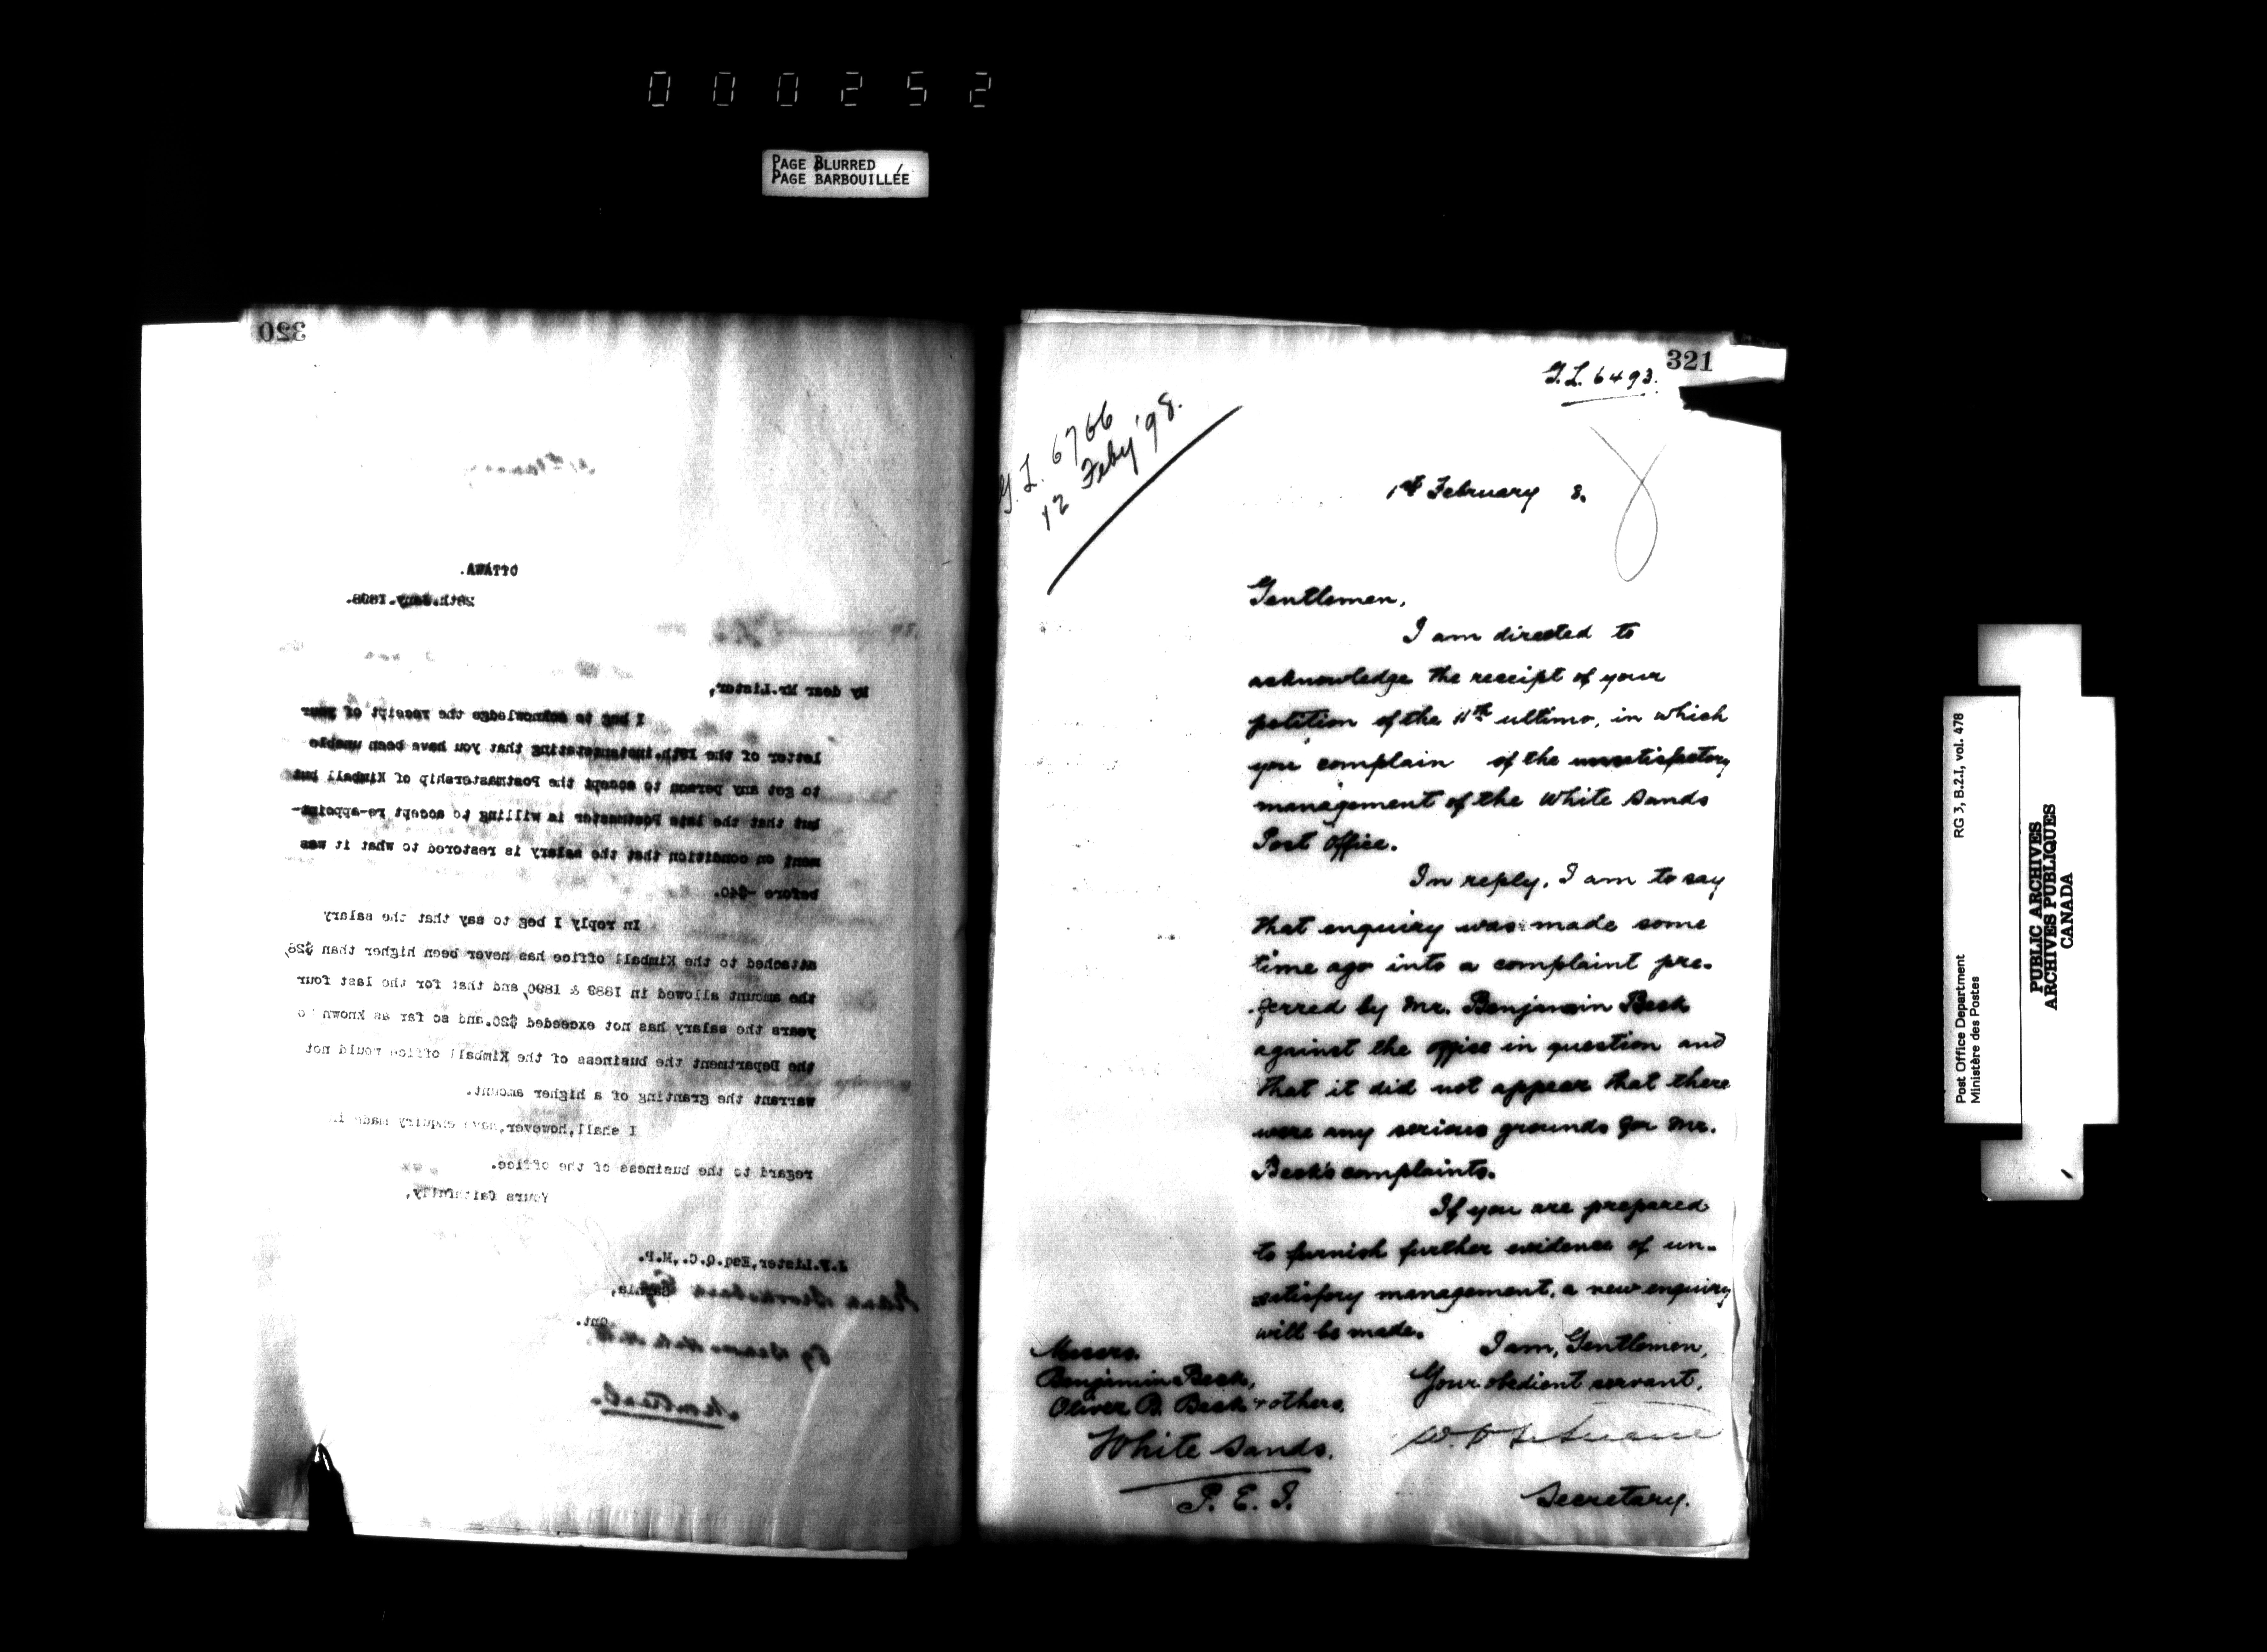 000252
PAGE BLURRED
PAGE BARBOUILLÉE
320
OTTAWA.
28th. Jany. 1898.
My dear Mr. Lister,
I beg to acknowledge the receipt of your
letter of the 19th. instant stating that you have been unable
to get any person to accept the Postmastership of Kimball but
but that the late Postmaster is willing to accept re-appoint-
ment on condition that the salary is restored to what it was
before -$40.
In reply I beg to say that the salary
attached to the Kimball office has never been higher than $28,
the amount allowed in 1889 & 1890, and that for the last four
years the salary has not exceeded $20. and so far as known to
the Department the business of the Kimball office would not
warrant the granting of a higher amount.
I shall, however, have enquiry made in
regard to the business of the office.
Yours faithfully,
J.F. Lister, Esq. Q.C., M.P.
Sarnia,
Ont.
Montreal.
321
G.L. 6493.
G.L. 6766
12 Feby '98.
1st February 8.
Gentlemen,
I am directed to
acknowledge the receipt of your
petition of the 11th ultimo, in which
you complain of the unsatisfactory
management of the White Sands
Post Office.
In reply, I am to say
that enquiry was made some
time ago into a complaint pre-
ferred by Mr. Benjamin Beck
against the office in question and
that it did not appear that there
were any serious grounds for Mr.
Beck's complaints.
If you are prepared
to furnish further evidence of un-
satisfory management, a new enquiry
will be made.
I am, Gentlemen,
Your obedient servant,
Secretary.
Messrs.
Benjamin Beck,
Oliver B. Beck & others,
White Sands,
P. E. I.
Post Office Department
Ministère des Postes
RG 3, B.2.I, vol. 478
PUBLIC ARCHIVES
ARCHIVES PUBLIQUES
CANADA